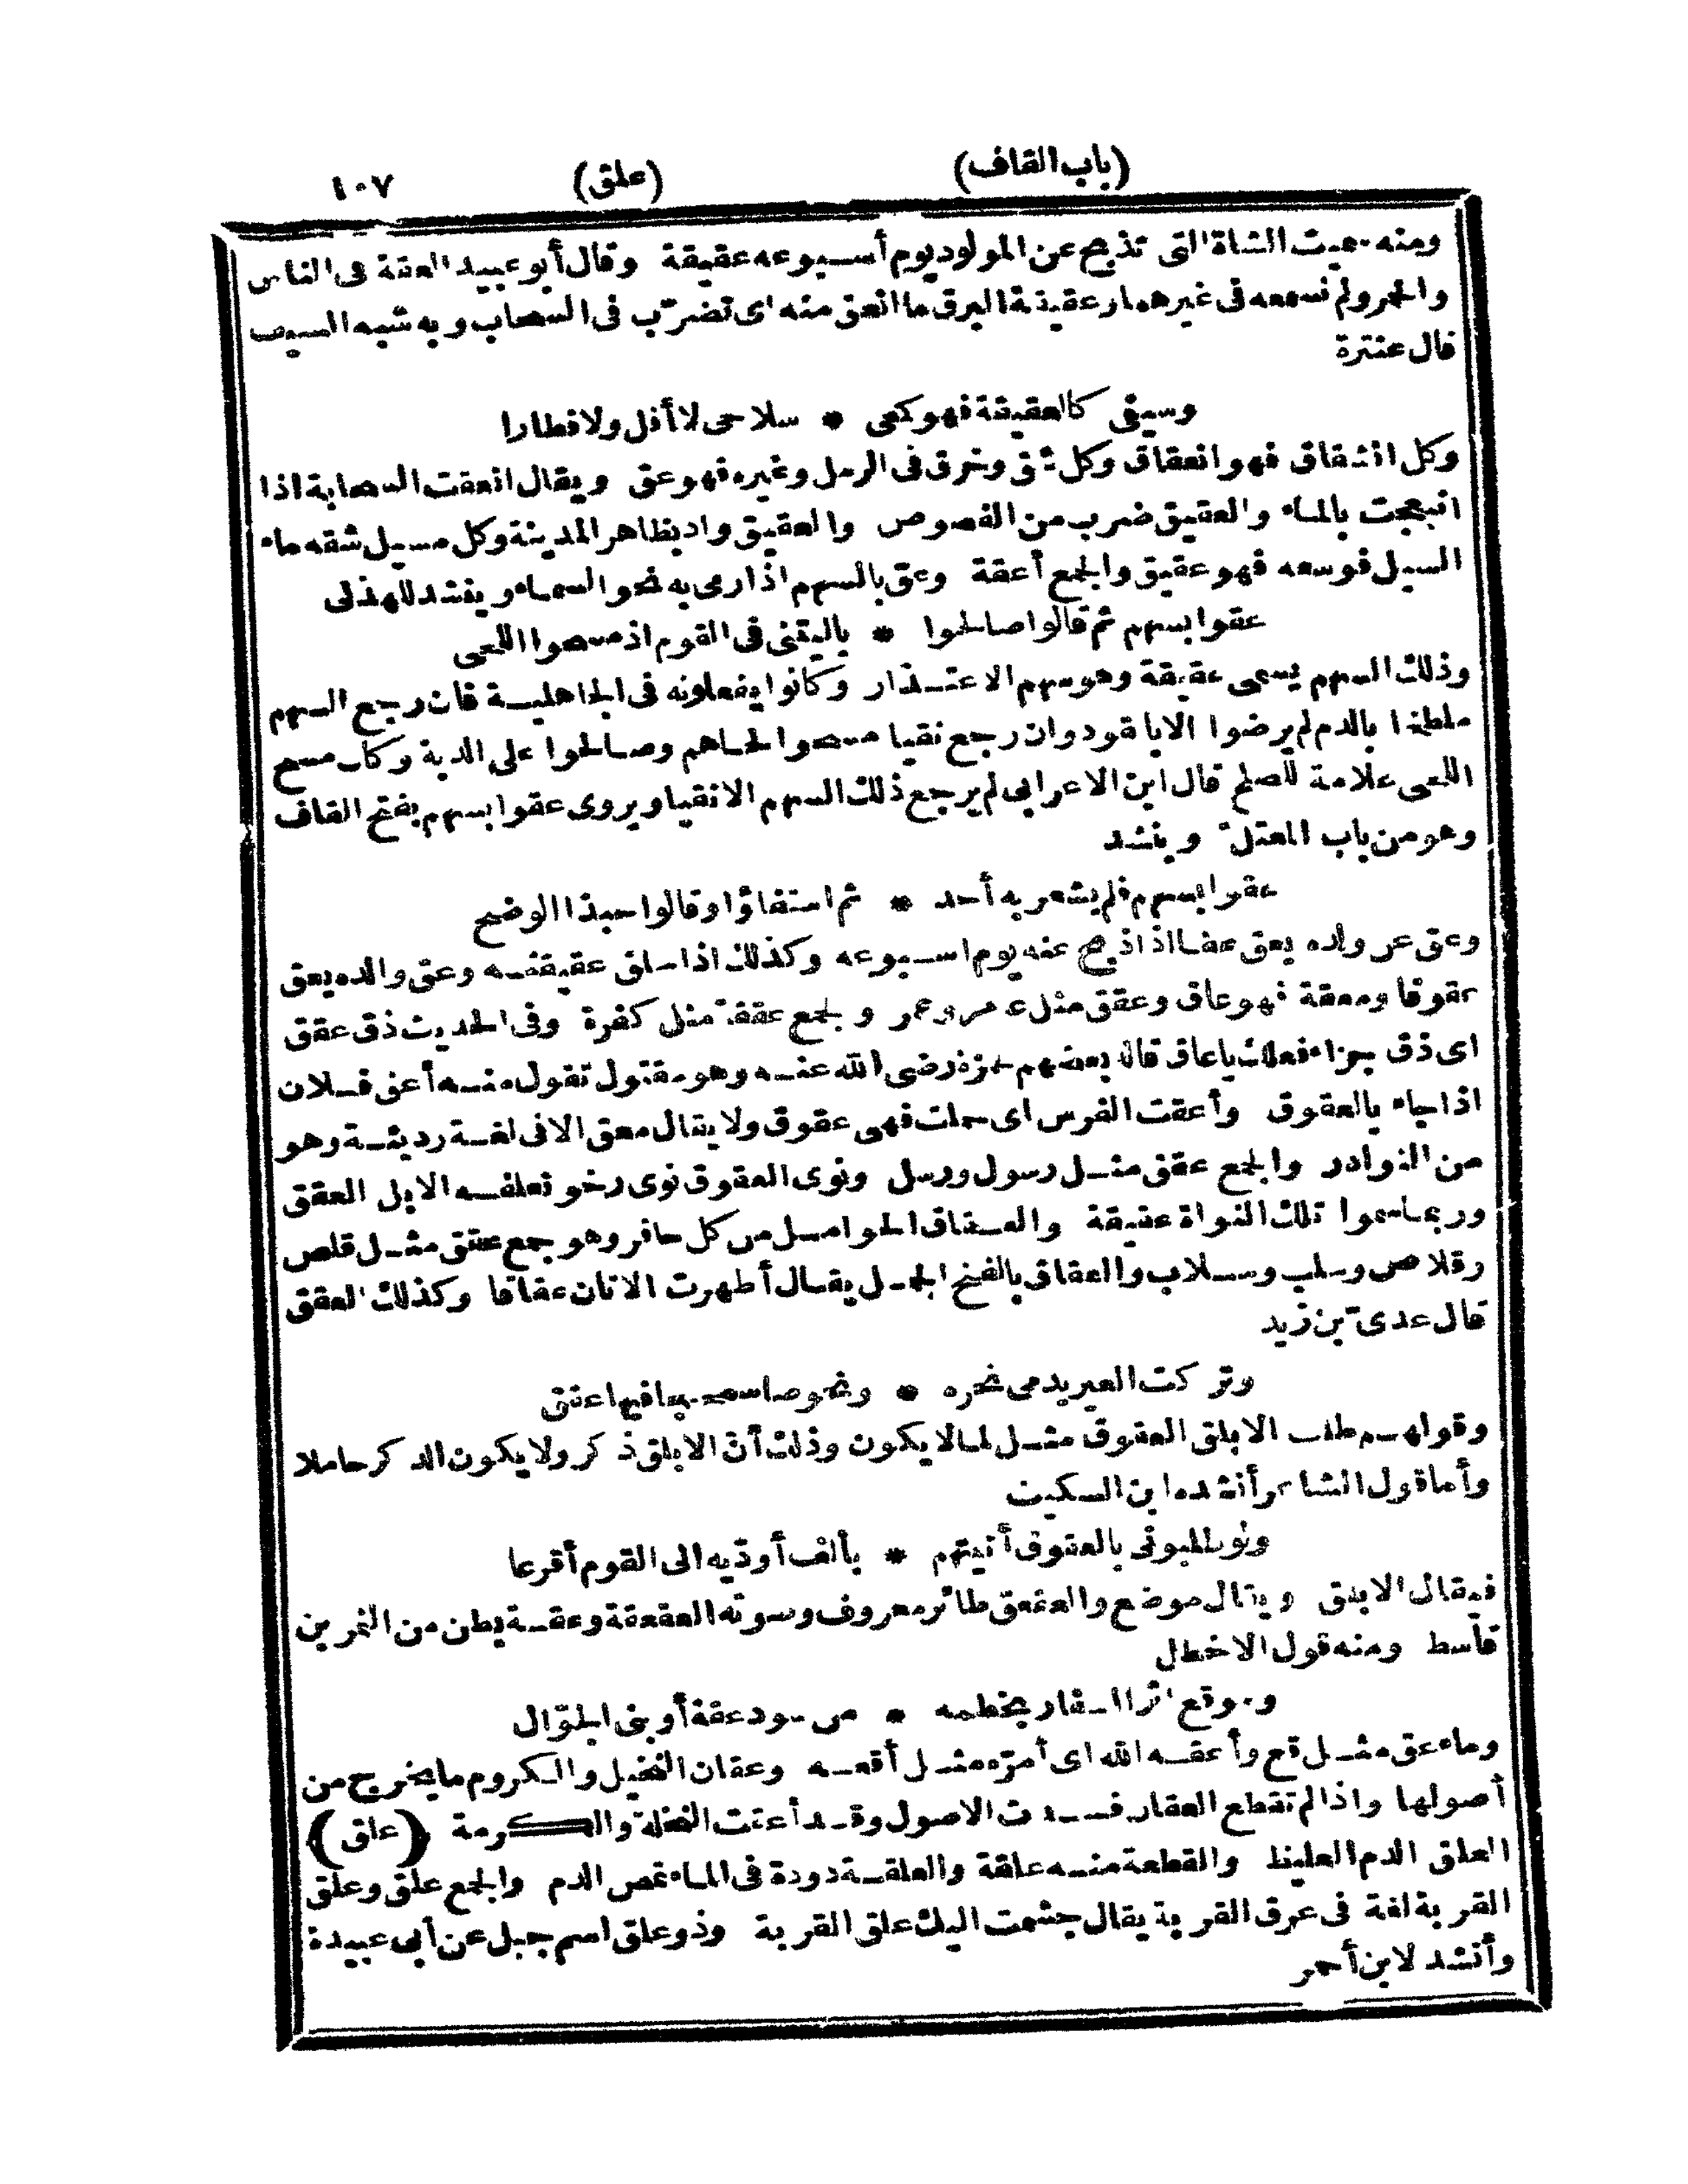 (باب القاف) (علق) ١٠٧
ومنه سميت الشاة التى تذبح عن المولود يوم أسبوعه عقيقة وقال أبو عبيد العقة فى الناس
والحمر ولم نسمعه فى غيرهما وعقيقة البرق ما انعق منه اى تضرّب فى السحاب وبه شبه السيف
قال عنترة
وسيفى كالعقيقة فهو كمعى * سلاحى لا أفل ولا فطارا
وكل انشقاق فهو انعقاق وكل شق وخرق فى الرمل وغيره فهو عق ويقال انعقت السحابة اذا
انبعجت بالماء والعقيق ضرب من الفصوص والعقيق واد بظاهر المدينة وكل مسيل شقه ماء
السيل فوسعه فهو عقيق والجمع أعقة وعق بالسهم اذا رمى به نحو السماء وينشد للهذلى
عقوا بسهم ثم قالوا صالحوا * ياليتنى فى القوم اذ مسحوا اللحى
وذلك السهم يسمى عقيقة وهو سهم الاعتذار وكانوا يفعلونه فى الجاهلية فان رجع السهم
ملطخا بالدم لم يرضوا الا بالقود وان رجع نقيا مسحوا لحاهم وصالحوا على الدية وكان مسح
اللحى علامة للصلح قال ابن الاعرابى لم يرجع ذلك السهم الا نقيا ويروى عقوا بسهم بفتح القاف
وهو من باب المعتل وينشد
عقوا بسهم فلم يشعر به أحد * ثم استفاؤا وقالوا حبذا الوضح
وعق عن ولده يعق عقا اذا ذبح عنه يوم اسبوعه وكذلك اذا حلق عقيقته وعق والده يعق
عقوقا ومعقة فهو عاق وعقق مثل عامر وعمر والجمع عققة مثل كفرة وفى الحديث ذق عقق
اى ذق جزاء فعلك ياعاق قاله بعضهم لحمزة رضى الله عنه وهو مقتول تقول منه أعق فلان
اذا جاء بالعقوق وأعقت الفرس اى حملت فهى عقوق ولا يقال معق الا فى لغة رديئة وهو
من النوادر والجمع عقق مثل رسول ورسل ونوى العقوق نوى رخو تعلفه الابل العقق
وربما سموا تلك النواة عقيقة والعقاق الحوامل من كل حافر وهو جمع عقق مثل قلص
وقلاص وسلب وسلاب والعقاق بالفتح الحمل يقال أظهرت الاتان عقاقا وكذلك العقق
قال عدى بن زيد
وتركت العير يدمى نحره * ونحوصا سمحجا فيها عقق
وقولهم طلب الابلق العقوق مثل لما لا يكون وذلك أن الابلق ذكر ولا يكون الذكر حاملا
وأما قول الشاعر أنشده ابن السكيت
ولو طلبونى بالعقوق أتيتهم * بألف أودّيه الى القوم أقرعا
فيقال الابلق ويقال موضع والعقعق طائر معروف وصوته العقعقة وعقة بطن من النمر بن
قاسط ومنه قول الاخطل
وموقع اثر السفار بخطمه * من سود عقة أو بنى الجوّال
وماء عق مثل قع وأعقه الله اى أمرّه مثل أقعه وعقان النخيل والكروم ما يخرج من
أصولها واذا لم تقطع العقان فسدت الاصول وقد أعقت النخلة والكرمة (علق)
العلق الدم الغليظ والقطعة منه علقة والعلقة دودة فى الماء تمص الدم والجمع علق وعلق
القربة لغة فى عرق القربة يقال جشمت اليك علق القربة وذو علق اسم جبل عن أبى عبيدة
وأنشد لابن أحمر